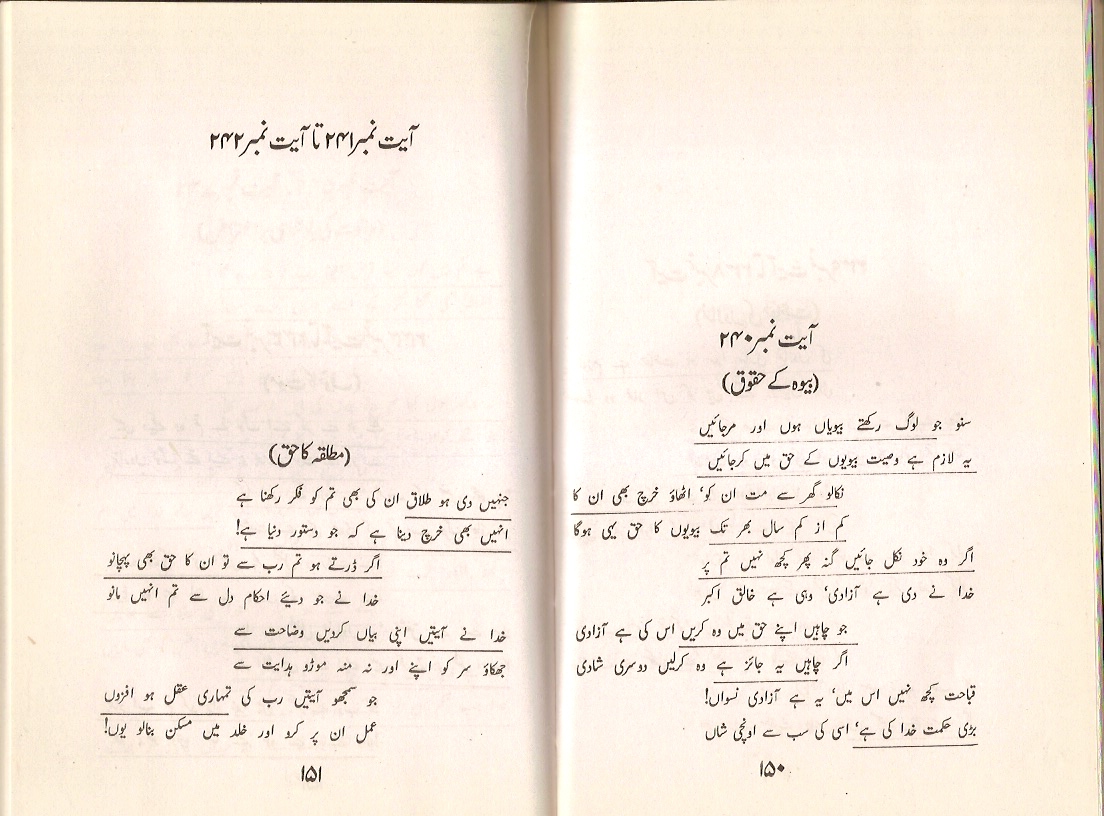 آیت نمبر ۲۴۰
(بیوہ کے حقوق)
سنو جو لوگ رکھتے بیویاں ہوں اور مرجائیں
یہ لازم ہے وصیت بیویوں کے حق میں کرجائیں
نکالو گھر سے مت ان کو، اٹھاؤ خرچ بھی ان کا
کم از کم سال بھر تک بیویوں کا حق یہی ہوگا
اگر وہ خود نکل جائیں گنہ پھر کچھ نہیں تم پر
خدا نے دی ہے آزادی، وہی ہے خالق اکبر
جو چاہیں اپنے حق میں وہ کریں اس کی ہے آزادی
اگر چاہیں یہ جائز ہے وہ کرلیں دوسری شادی
قباحت کچھ نہیں اس میں، یہ ہے آزادی نسواں!
بڑی حکمت خدا کی ہے، اسی کی سب سے اونچی شاں
۱۵۰
آیت نمبر ۲۴۱ تا آیت نمبر ۲۴۲
(مطلقہ کا حق)
جنہیں دی ہو طلاق ان کی بھی تم کو فکر رکھنا ہے
انہیں بھی خرچ دینا ہے کہ جو دستور دنیا ہے!
اگر ڈرتے ہو تم رب سے تو ان کا حق بھی پہچانو
خدا نے جو دیئے احکام دل سے تم انہیں مانو
خدا نے آیتیں اپنی بیاں کردیں وضاحت سے
جھکاؤ سر کو اپنے اور نہ منہ موڑو ہدایت سے
جو سمجھو آیتیں رب کی تمہاری عقل ہو افزوں
عمل ان پر کرو اور خلد میں مسکن بنالو یوں!
۱۵۱